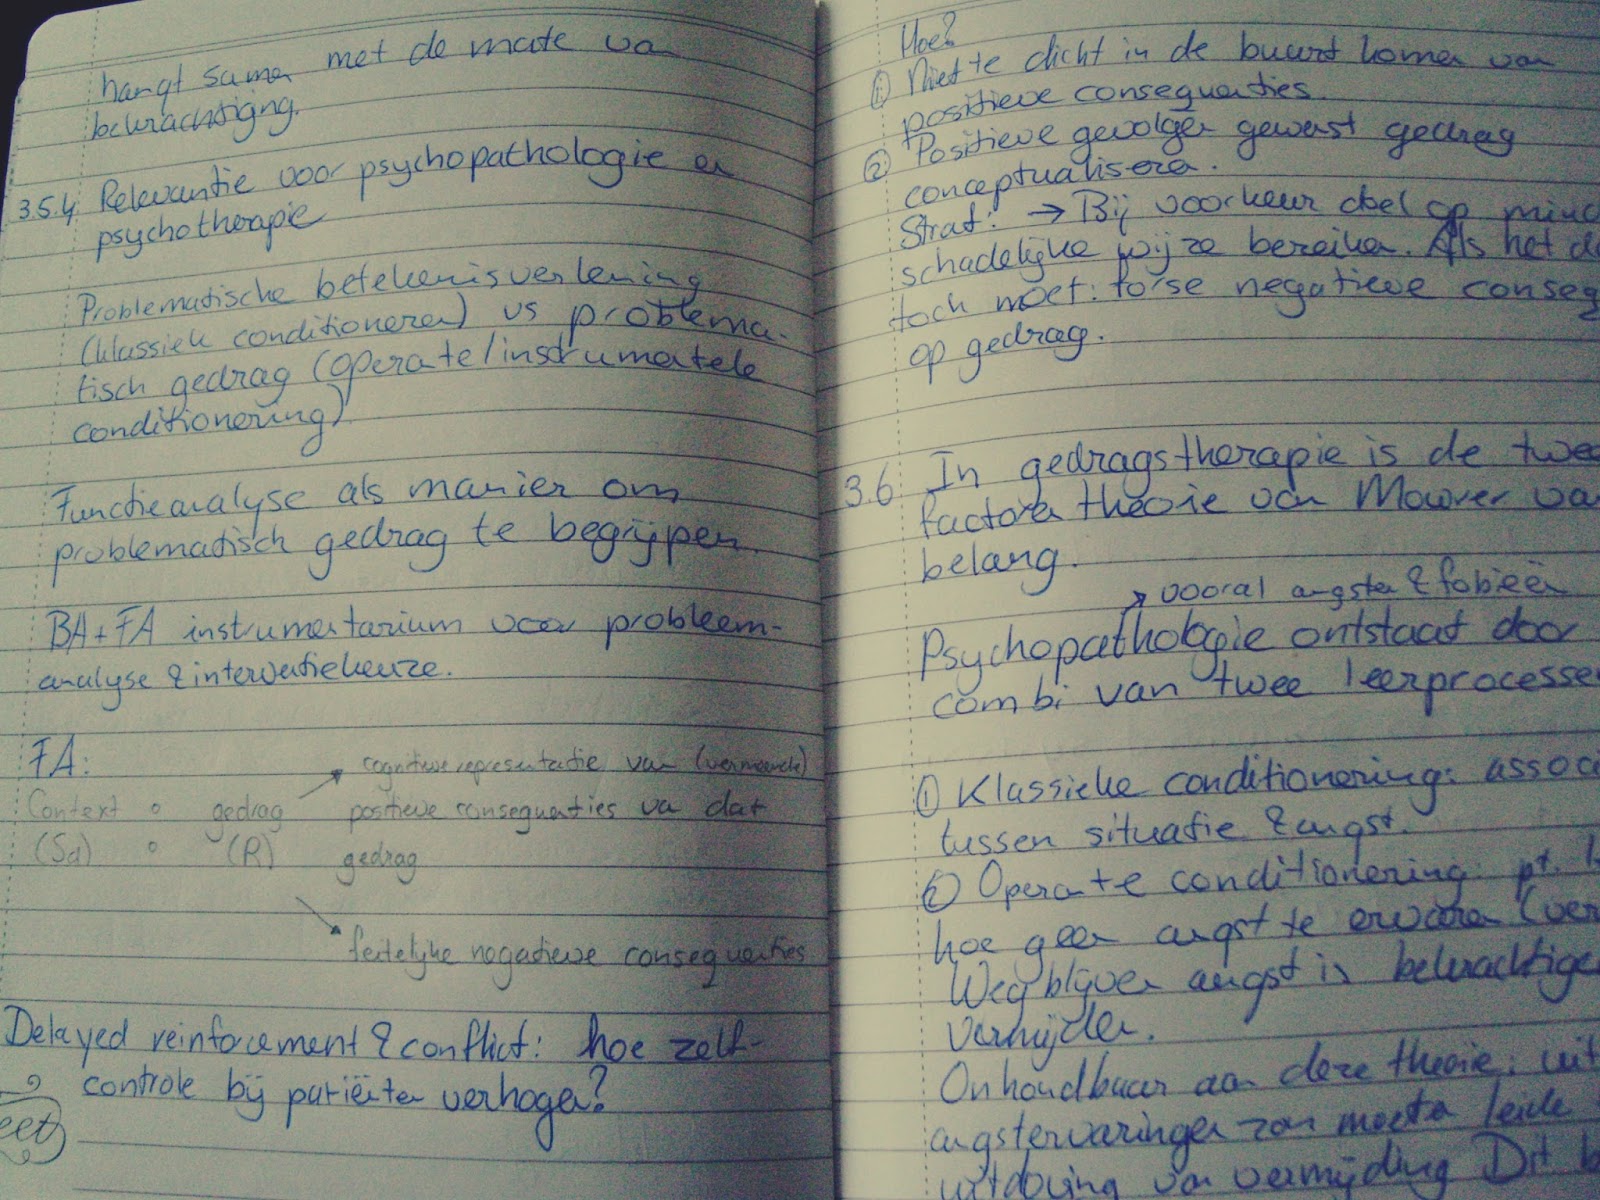 hangt samen met de mate van
bekrachtiging.
3.5.4. Relevantie voor psychopathologie en
psychotherapie
Problematische betekenisverlening
(klassiek conditioneren) vs problema-
tisch gedrag (operate/instrumentele
conditionering)
Functieanalyse als manier om
problematisch gedrag te begrijpen.
BA+FA instrumentarium voor probleem-
analyse & interventiekeuze.
FA:
cognitieve representatie van (vermeende)
Context ° gedrag positieve consequenties va dat
(Sd) ° (R) gedrag
feitelijke negatieve consequenties
Delayed reinforcement & conflict: hoe zelf-
controle bij patiënten verhogen?
Hoe?
① Niet te dicht in de buurt komen van
positieve consequenties.
② Positieve gevolgen gewenst gedrag
conceptualiseren.
Straf: → Bij voorkeur doel op mind
schadelijke wijze bereiken. Als het d
toch moet: forse negatieve conseq
op gedrag.
3.6 In gedragstherapie is de twee
factoren theorie van Mowrer va
belang.
vooral angsten & fobieën
Psychopathologie ontstaat door
combi van twee leerprocessen
① Klassieke conditionering: assoc
tussen situatie & angst.
② Operante conditionering: pt.
hoe geen angst te ervaren (ver
Wegblijven angst is bekrachtige
vermijden.
Onhoudbaar aan deze theorie: uit
angstervaringen zou moeten leide
uitdoving van vermijding Dit